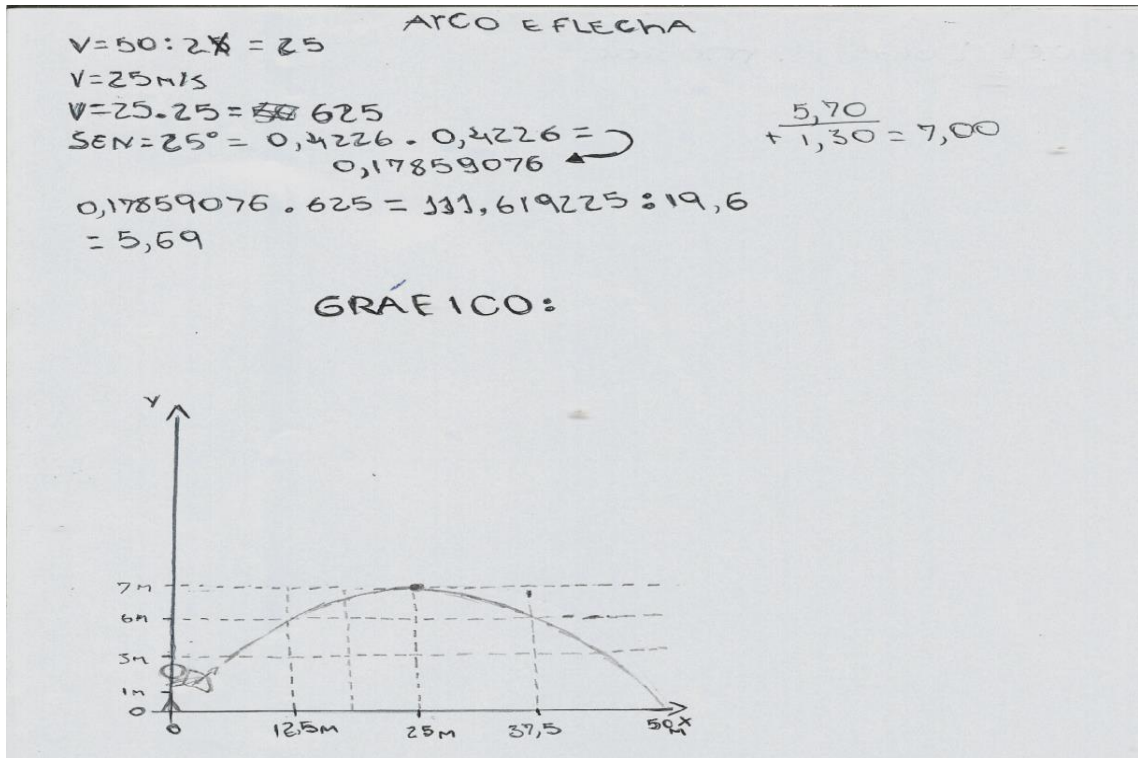 ARCO E FLECHA
V=50:2 = 25
V=25m/s
V=25.25= 625
SEN=25°= 0,4226 . 0,4226 =
0,17859076
0,17859076 . 625 = 111,619225 : 19,6
= 5,69
5,70
+ 1,30 = 7,00
GRÁFICO:
Y
7m
6m
3m
1m
0
0
12,5m
25m
37,5
50m
X